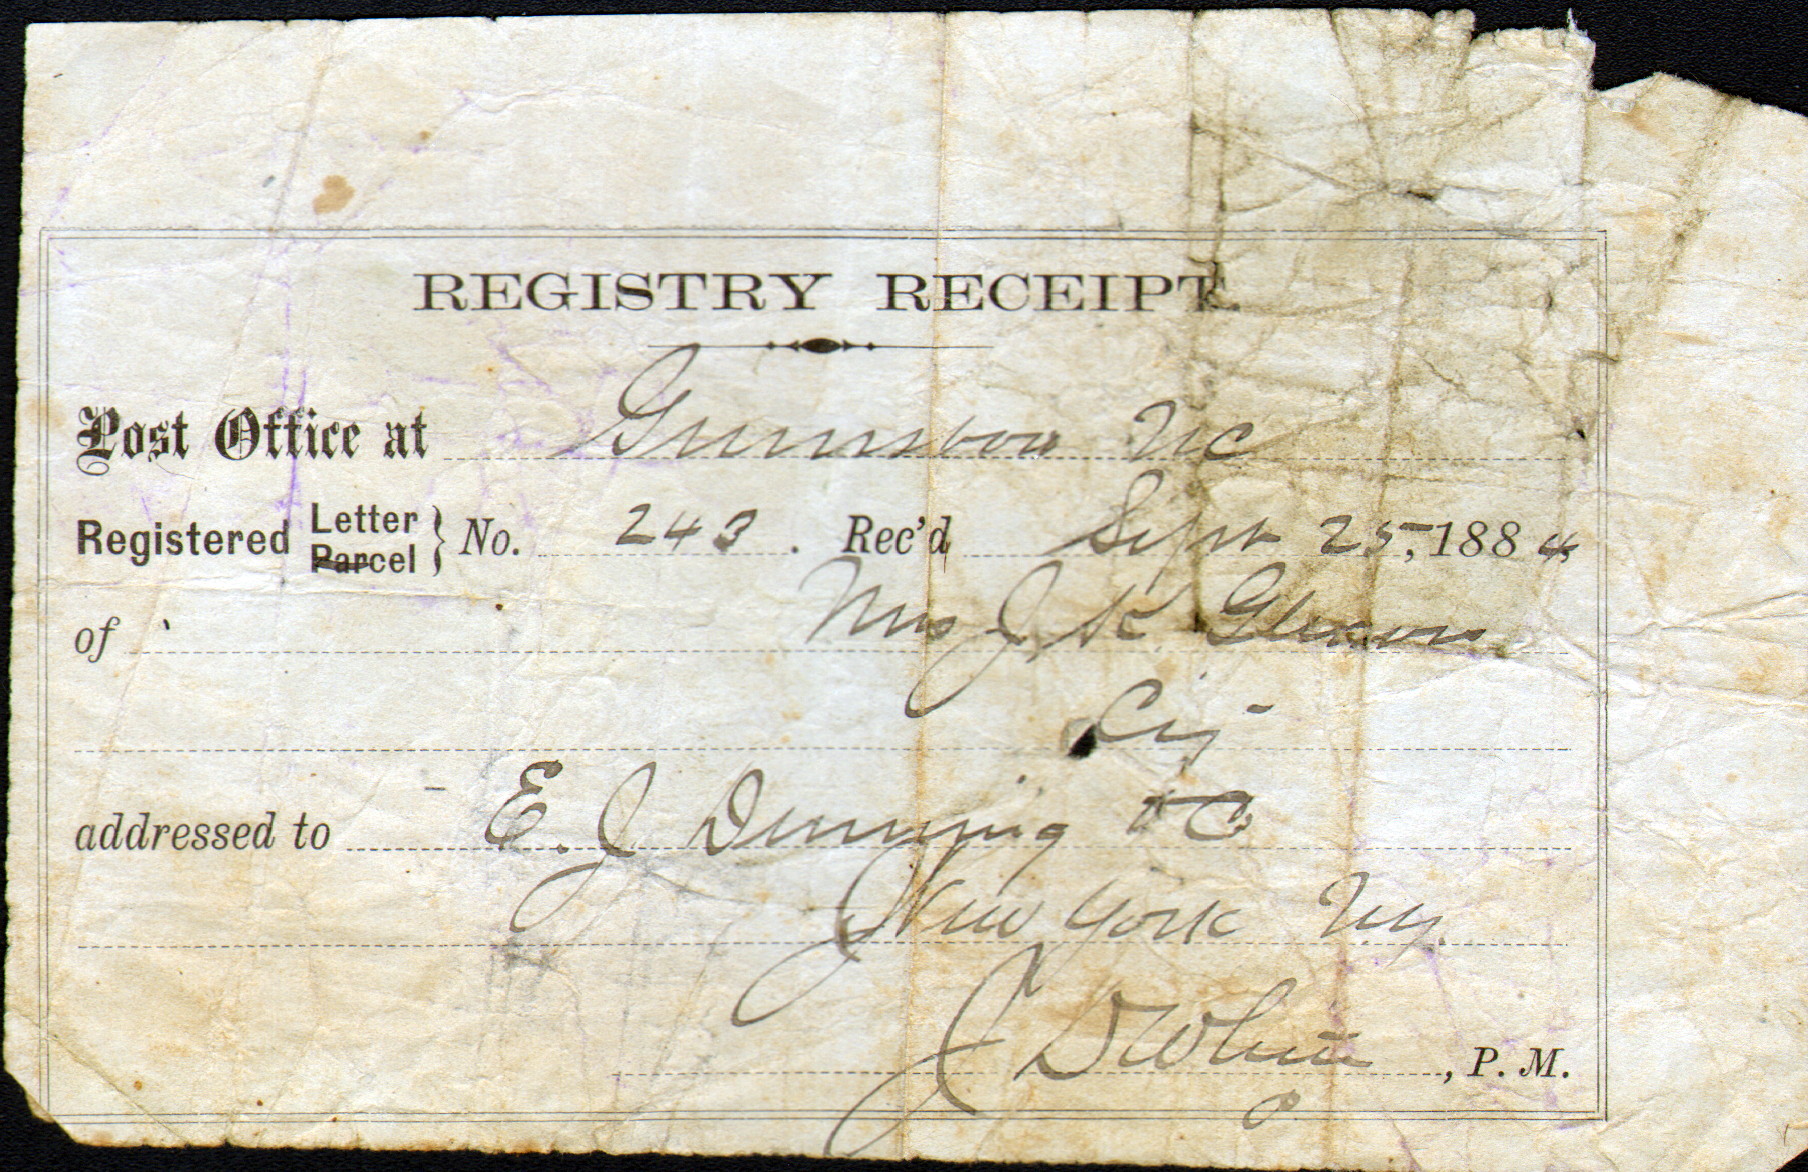 REGISTRY RECEIPT.
Post Office at Greensboro NC
Registered Letter Parcel } No. 243. Rec'd Sept 25, 1884,
of Mrs J. K.
City
addressed to E. J. Denning & Co
New York N.Y.
J D White, P. M.